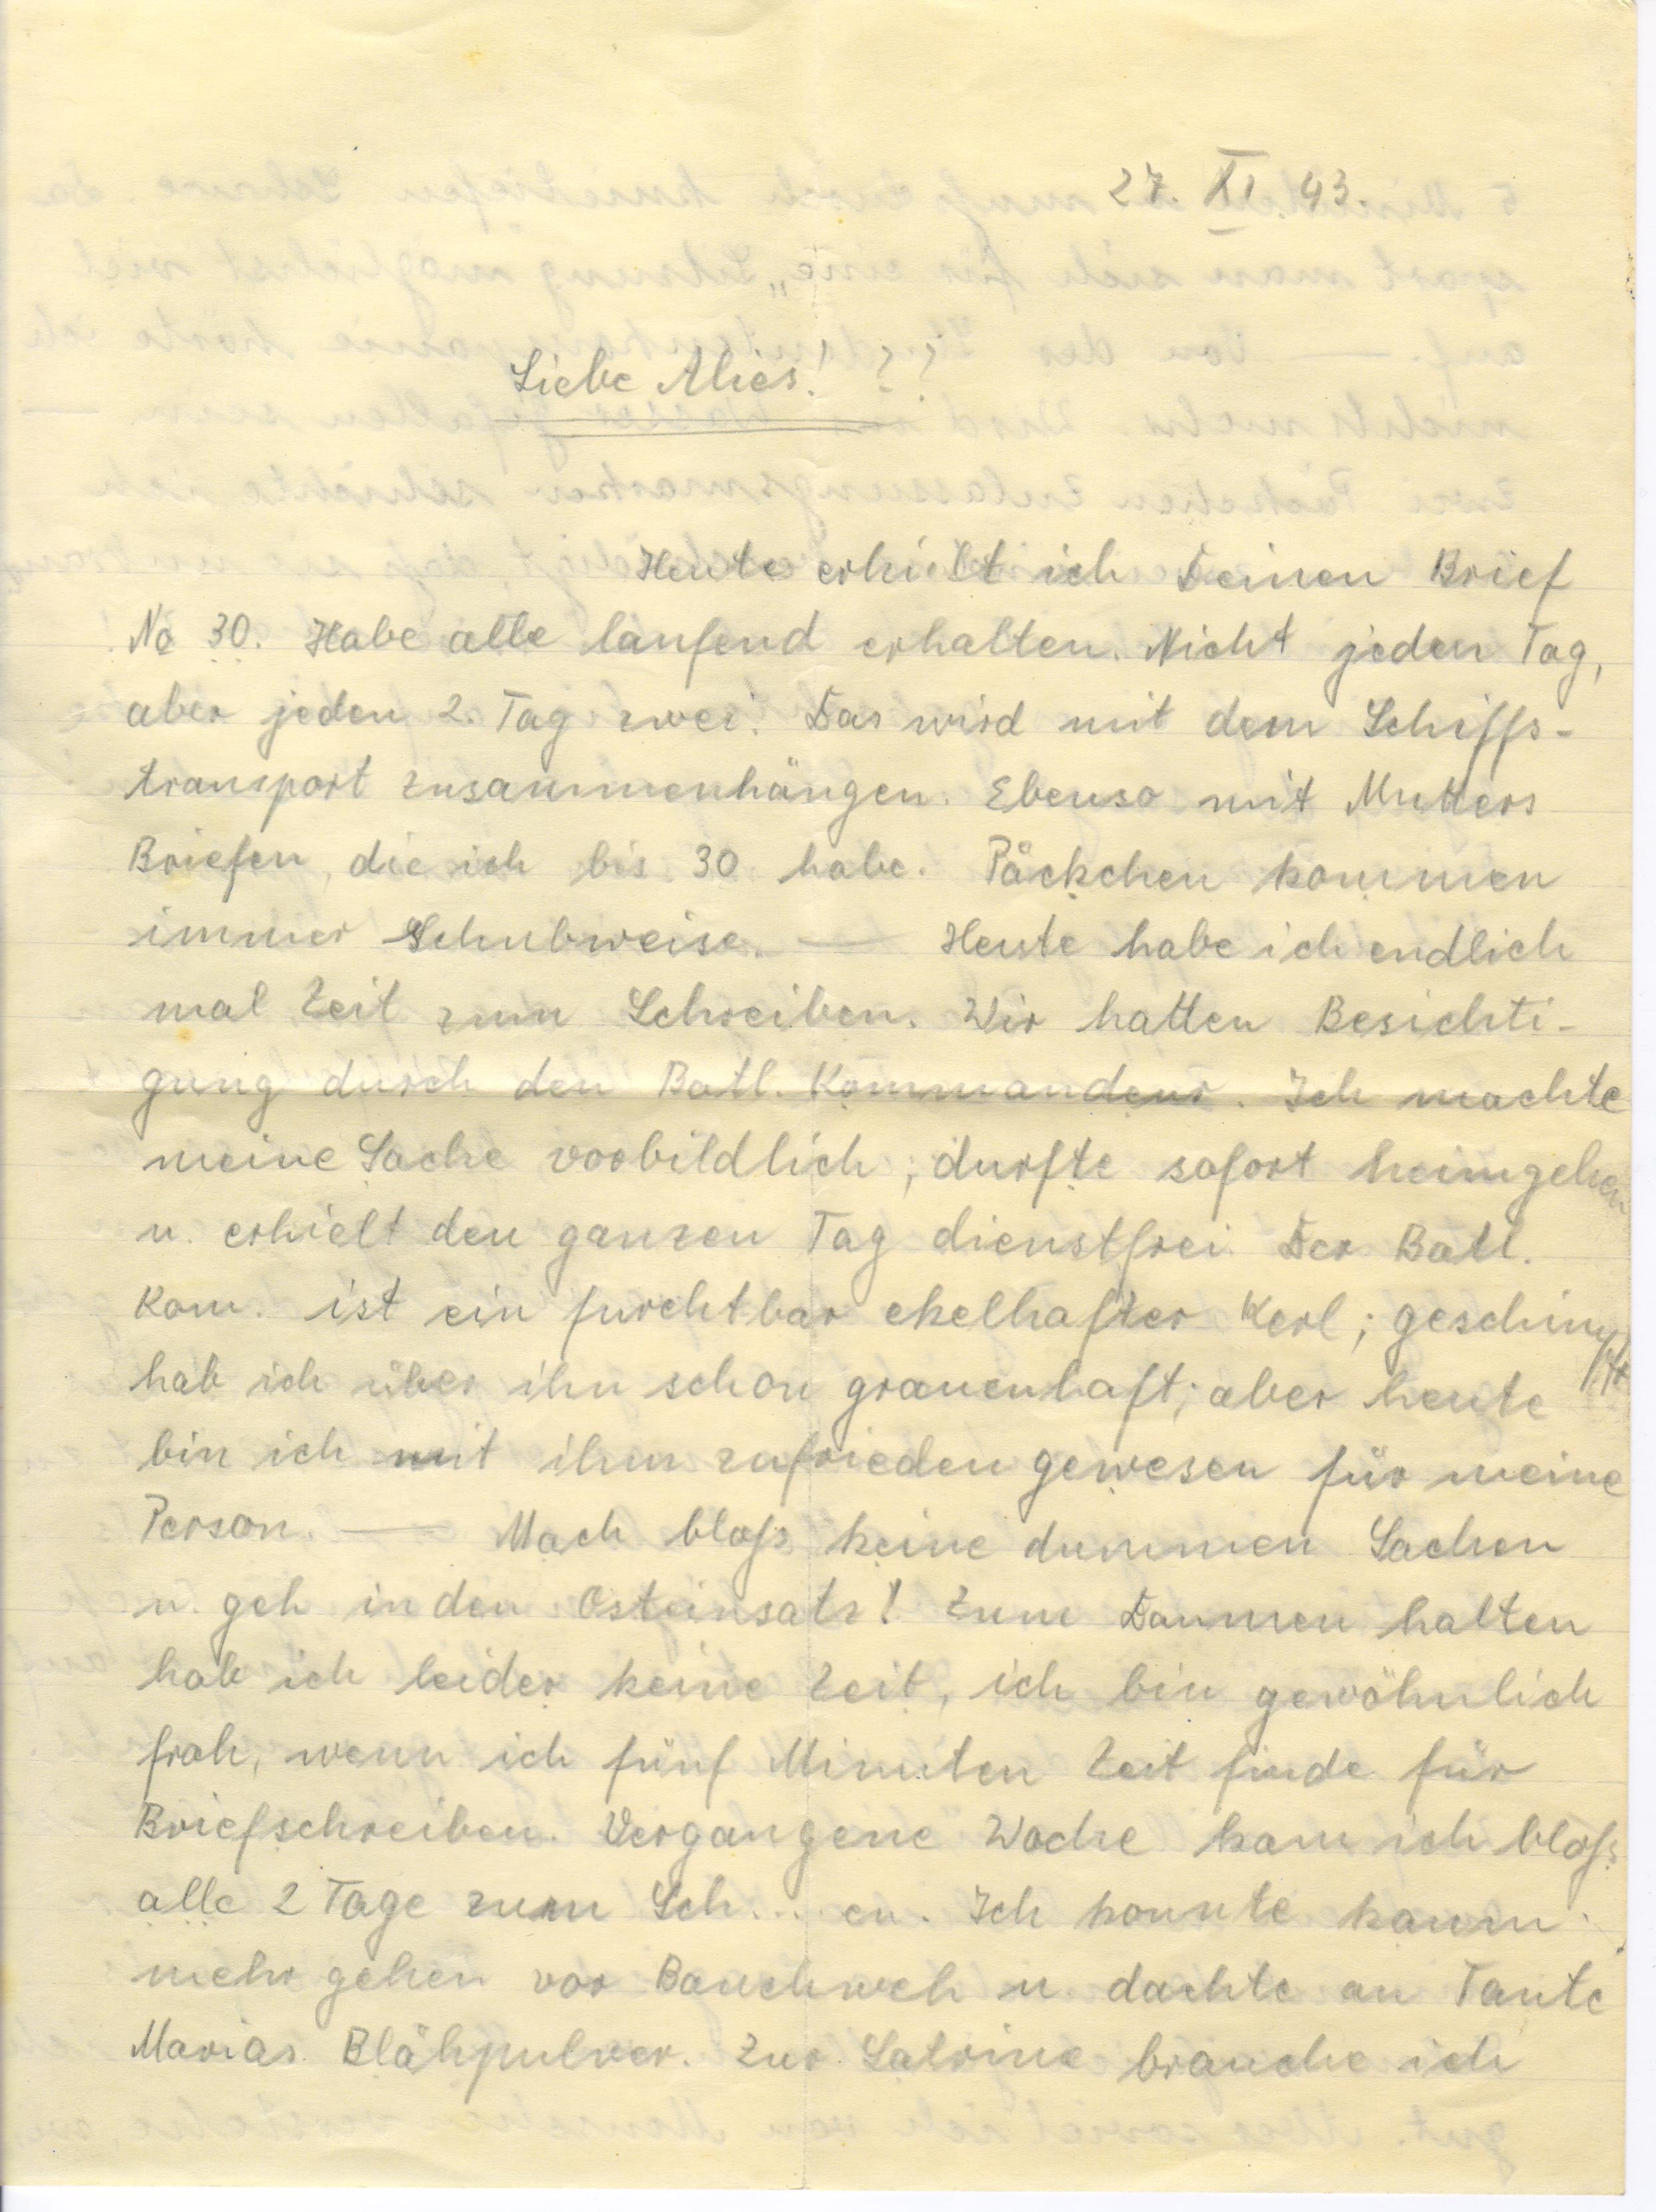 27. XI. 43.
Liebe Alies! ??
Heute erhielt ich Deinen Brief
No 30. Habe alle laufend erhalten. Nicht jeden Tag,
aber jeden 2. Tag zwei. Das wird mit dem Schiffs-
transport zusammenhängen. Ebenso mit Mutters
Briefen, die ich bis 30 habe. Päckchen kommen
immer Schubweise. — Heute habe ich endlich
mal Zeit zum Schreiben. Wir hatten Besichti-
gung durch den Batl. Kommandeur. Ich machte
meine Sache vorbildlich, durfte sofort heimgehen
u. erhielt den ganzen Tag dienstfrei. Der Batl.
Kom. ist ein furchtbar ekelhafter Kerl; geschimpft
hab ich über ihn schon grauenhaft; aber heute
bin ich mit ihm zufrieden gewesen für meine
Person. — Mach bloß keine dummen Sachen
u. geh in den Osteinsatz! Zum Daumen halten
hab ich leider keine Zeit, ich bin gewöhnlich
froh, wenn ich fünf Minuten Zeit finde für
Briefschreiben. Vergangene Woche kam ich bloß
alle 2 Tage zum Sch... en. Ich konnte kaum
mehr gehen vor Bauchweh u. dachte an Tante
Marias Blähpulver. Zur Latrine brauche ich